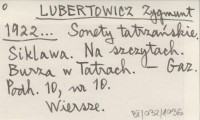 LUBERTOWICZ Zygmunt
1922... Sonety tatrzańskie.
Siklawa. Na szczytach.
Burza w Tatrach. — Gaz.
Podh. 10, nr 10.
Wiersze.